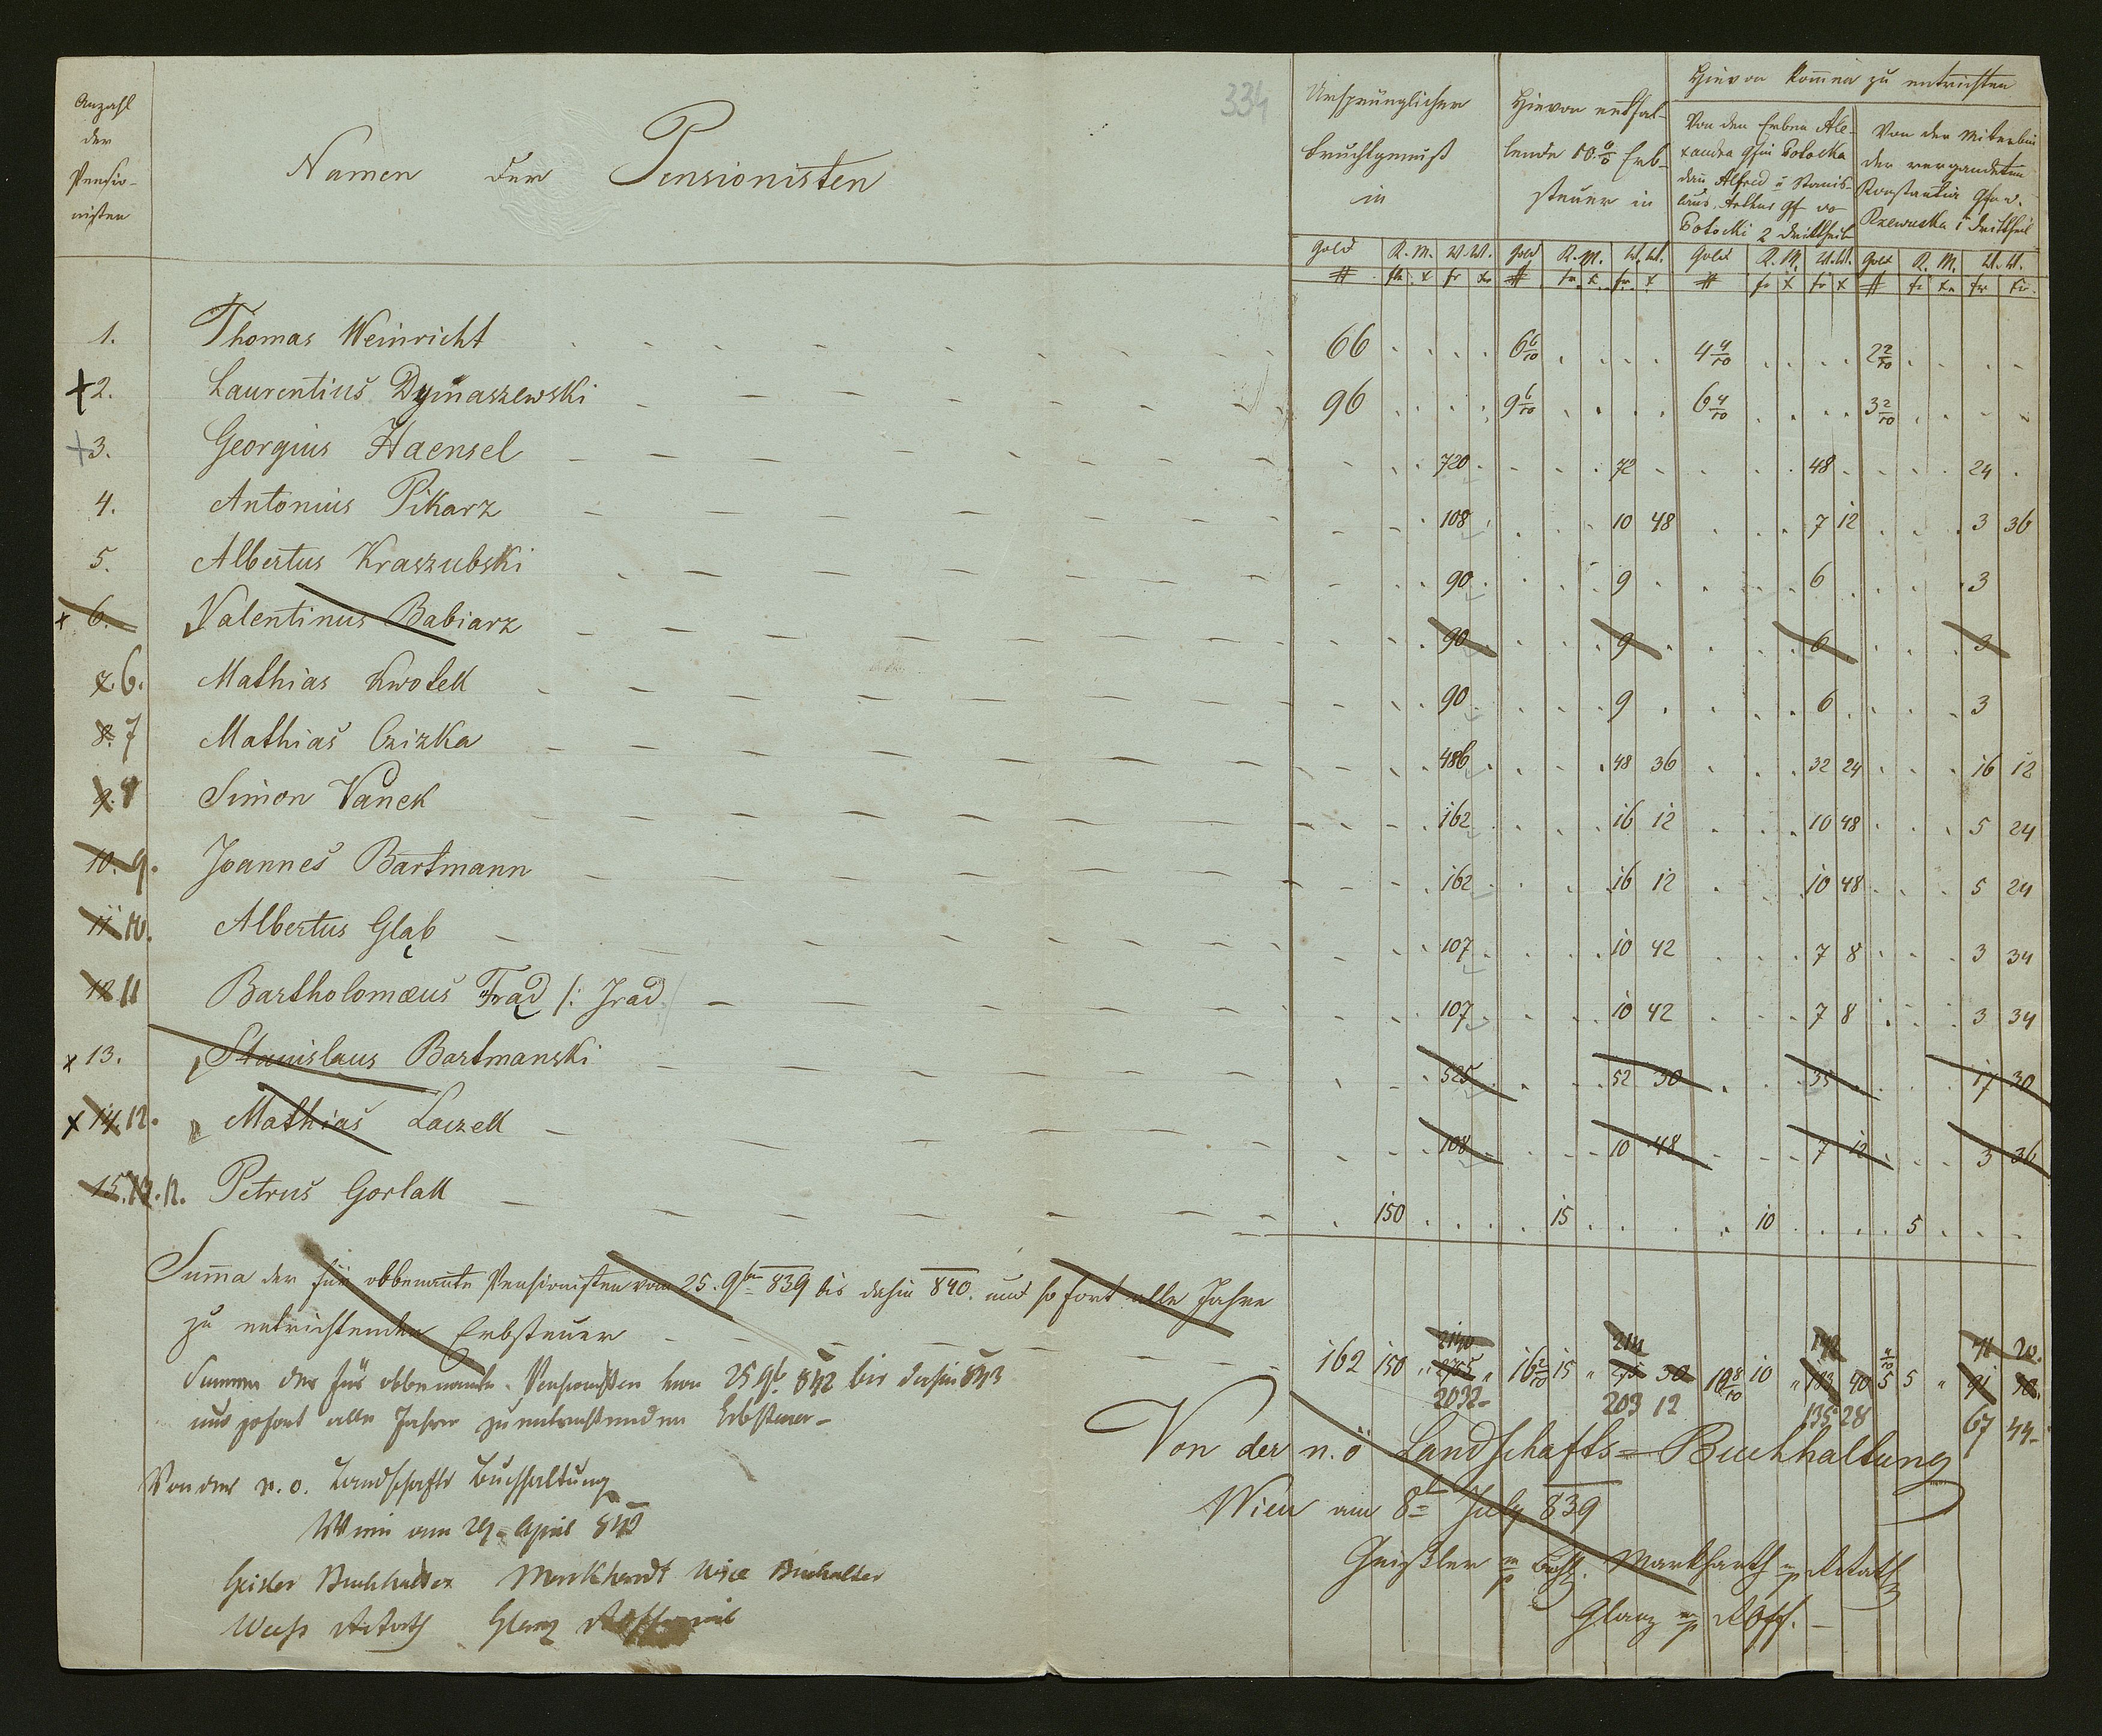 334
Anzahl
der
Pensio-
nisten
Namen der Pensionisten
Ursprünglicher
Fruchtgenuß
in
Hievon entfal-
lende 10 % Erb-
steuer in
Hievon kom̅en zu entrichten
Von den Erben Ale-
xandra Gfin Potocka
dan̅ Alfred u Stanis-
laus Gf
Potocki 2 Drittheile
Von der Miterbin
der
Konstantia Gfin v.
Rzewuska 1 Drittheil
Gold K. M. W. W. Gold K. M. W. W. Gold K. M. W. W. Gold K. M. W. W.
# fr x fr xr # fr x fr x # fr x fr x # fr xr fr xr
1. Thomas Weinricht 66 6 6/10 4 4/10 2 2/10
+2. Laurentius Dymaszewski 96 9 6/10 6 4/10 3 2/10
+3. Georgius Haensel 720 72 48 24
4. Antonius Pikarz 108 10 48 7 12 3 36
5. Albertus Kraszubski 90 9 6 3
x 6. Valentinus Babiarz 90 9 6 3
7. 6. Mathias Kwotek 90 9 6 3
8. 7 Mathias Czizka 486 48 36 32 24 16 12
9. 8 Simon Vanek 162 16 12 10 48 5 24
10. 9. Joannes Bartmann 162 16 12 10 48 5 24
11 10. Albertus Gląb 107 10 42 7 8 3 34
12 11 Bartholomæus Frąd /: Jrad 107 10 42 7 8 3 34
x 13. Stanislaus Bartmanski 525 52 30 35 17 30
x 14. 12. Mathias Laczek 108 10 48 7 12 3 36
15. 13. 12. Petrus Gorlak 150 15 10 5
Sum̅a der für obbenan̅te Pensionisten vom 25. 9ber 839 bis dahin 840. und sofort alle Jahre
zu entrichtenden Erbsteuer
2140 214 142 71 20.
162 150 2755 16 2/10 15 275 30 10 8/10 10 183 40 5 4/10 5 91 50.
2032 203 12 135 28 67 44
Summe der für obbenannte Pensionisten vom 25 9b. 842 bis dahin 843
und sofort alle Jahre zu entrichtenden Erbsteuer
Von der n. ö Landschafts-Buchhaltung
Wien am 8t July 839
Geißler Buchh. Markharth
Glanz
Von der n. o. Landschafts Buchhaltung
Wien am 24 April 842
Geisler Buchhalter Markhardt Vice Buchalter
Glanz